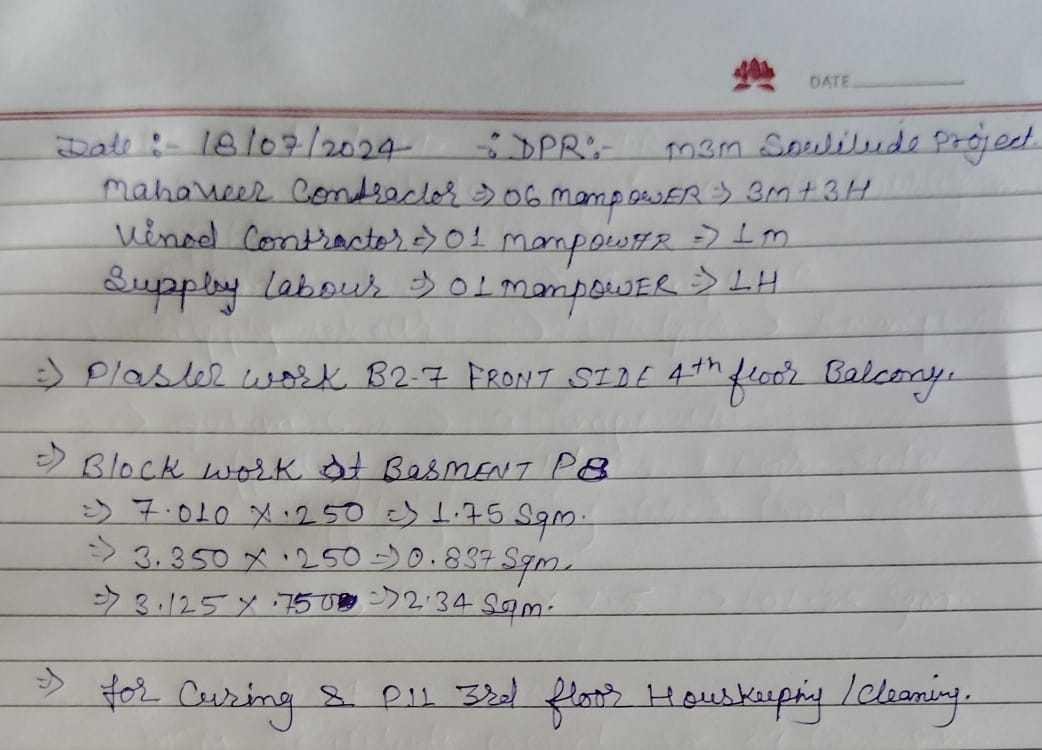 DATE
Date :- 18/07/2024 -: DPR :- m3m Soulilude Project.
Mahaveer Contractor => 06 manpowER => 3M + 3H
Vinod Contractor => 01 manpowER => 1m
Supply labour => 01 manpowER => 1H
=> Plaster work B2-7 FRONT SIDE 4th floor Balcony.
=> Block work at BasMENT P8
=> 7.010 x .250 => 1.75 Sqm.
=> 3.350 x .250 => 0.837 Sqm.
=> 3.125 x .750 => 2.34 Sqm.
=> for Curing & P11 3rd floor Houskeeping / cleaning.